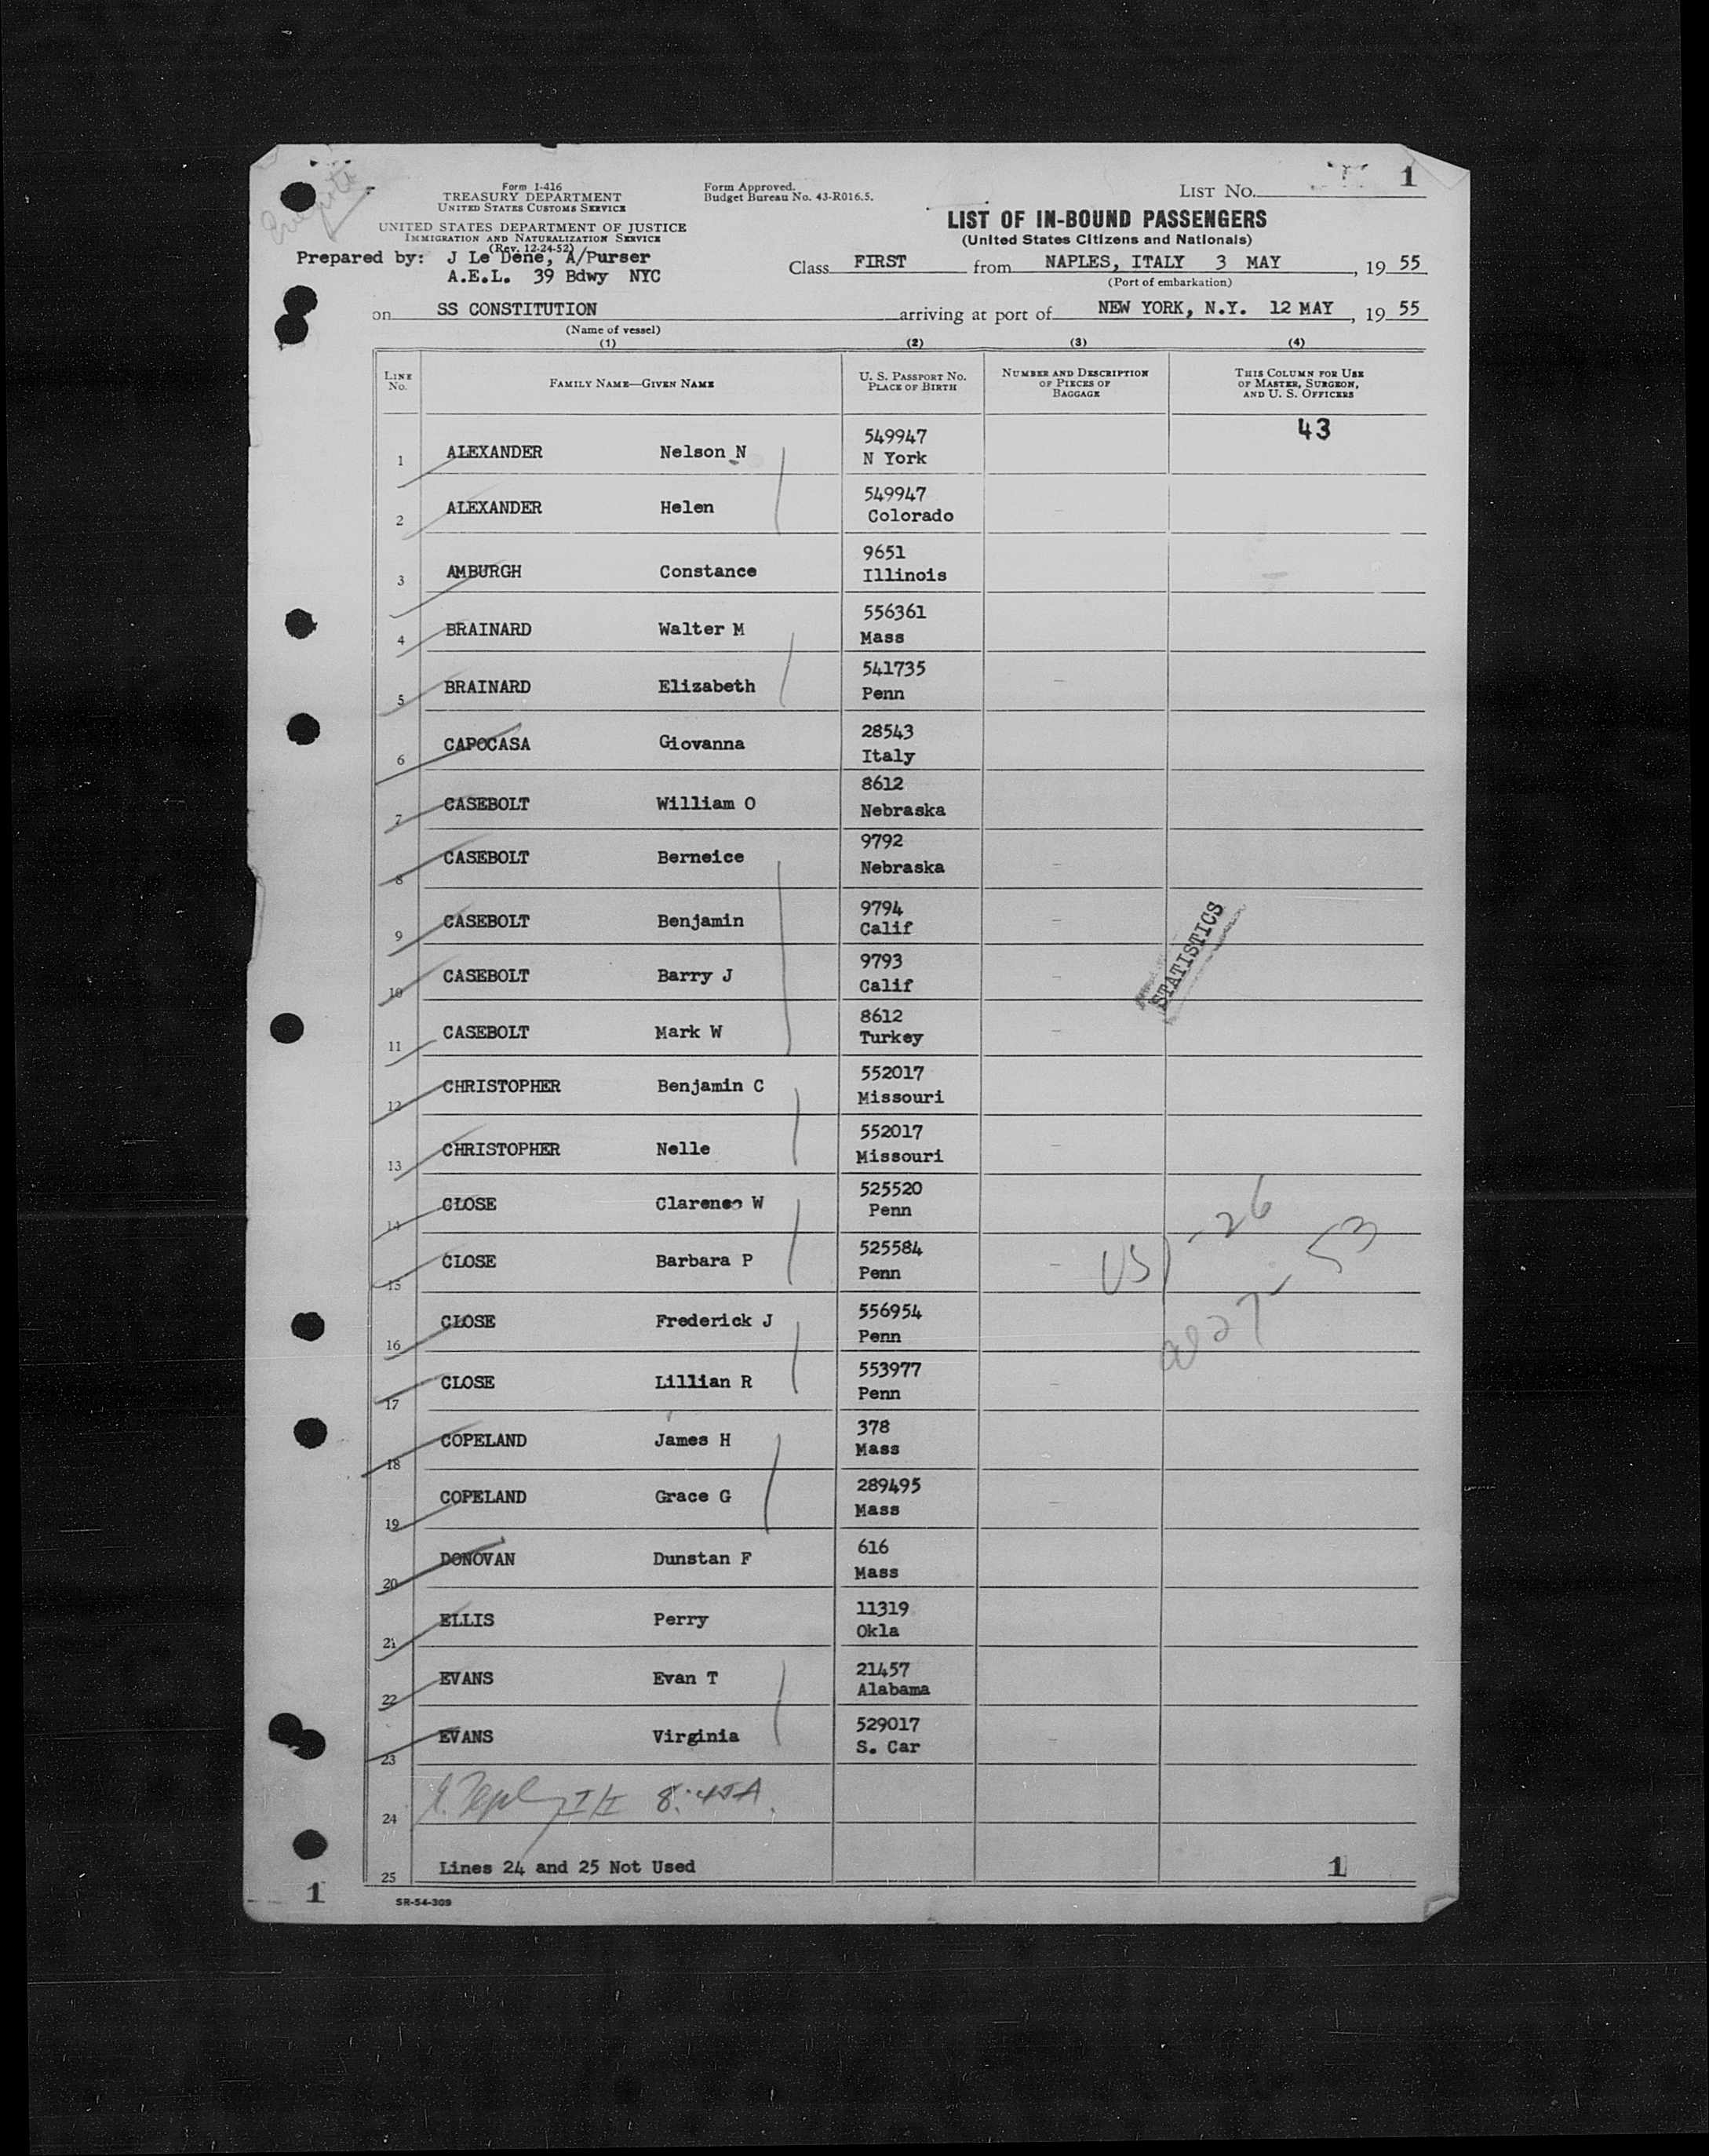 Form I-416
TREASURY DEPARTMENT
UNITED STATES CUSTOMS SERVICE
UNITED STATES DEPARTMENT OF JUSTICE
IMMIGRATION AND NATURALIZATION SERVICE
(Rev. 12-24-52)
Form Approved.
Budget Bureau No. 43-R016.5.
LIST No. 1
LIST OF IN-BOUND PASSENGERS
(United States Citizens and Nationals)
Prepared by: J Le Dene, A/Purser
A.E.L. 39 Bdwy NYC
Class FIRST from NAPLES, ITALY 3 MAY, 19 55
(Port of embarkation)
on SS CONSTITUTION arriving at port of NEW YORK, N.Y. 12 MAY, 19 55
(Name of vessel)
(1) (2) (3) (4)
LINE No. FAMILY NAME—GIVEN NAME U. S. PASSPORT No. PLACE OF BIRTH NUMBER AND DESCRIPTION OF PIECES OF BAGGAGE THIS COLUMN FOR USE OF MASTER, SURGEON, AND U. S. OFFICERS
43
1 ALEXANDER Nelson N 549947 N York
2 ALEXANDER Helen 549947 Colorado
3 AMBURGH Constance 9651 Illinois
4 BRAINARD Walter M 556361 Mass
5 BRAINARD Elizabeth 541735 Penn
6 CAPOCASA Giovanna 28543 Italy
7 CASEBOLT William O 8612 Nebraska
8 CASEBOLT Berneice 9792 Nebraska
9 CASEBOLT Benjamin 9794 Calif
10 CASEBOLT Barry J 9793 Calif
STATISTICS
11 CASEBOLT Mark W 8612 Turkey
12 CHRISTOPHER Benjamin C 552017 Missouri
13 CHRISTOPHER Nelle 552017 Missouri
14 CLOSE Clarence W 525520 Penn
15 CLOSE Barbara P 525584 Penn
US - 26
16 CLOSE Frederick J 556954 Penn
- 53
17 CLOSE Lillian R 553977 Penn
18 COPELAND James H 378 Mass
19 COPELAND Grace G 289495 Mass
20 DONOVAN Dunstan F 616 Mass
21 ELLIS Perry 11319 Okla
22 EVANS Evan T 21457 Alabama
23 EVANS Virginia 529017 S. Car
24 I/I 8:45A.
25 Lines 24 and 25 Not Used 1
1
SR-54-309